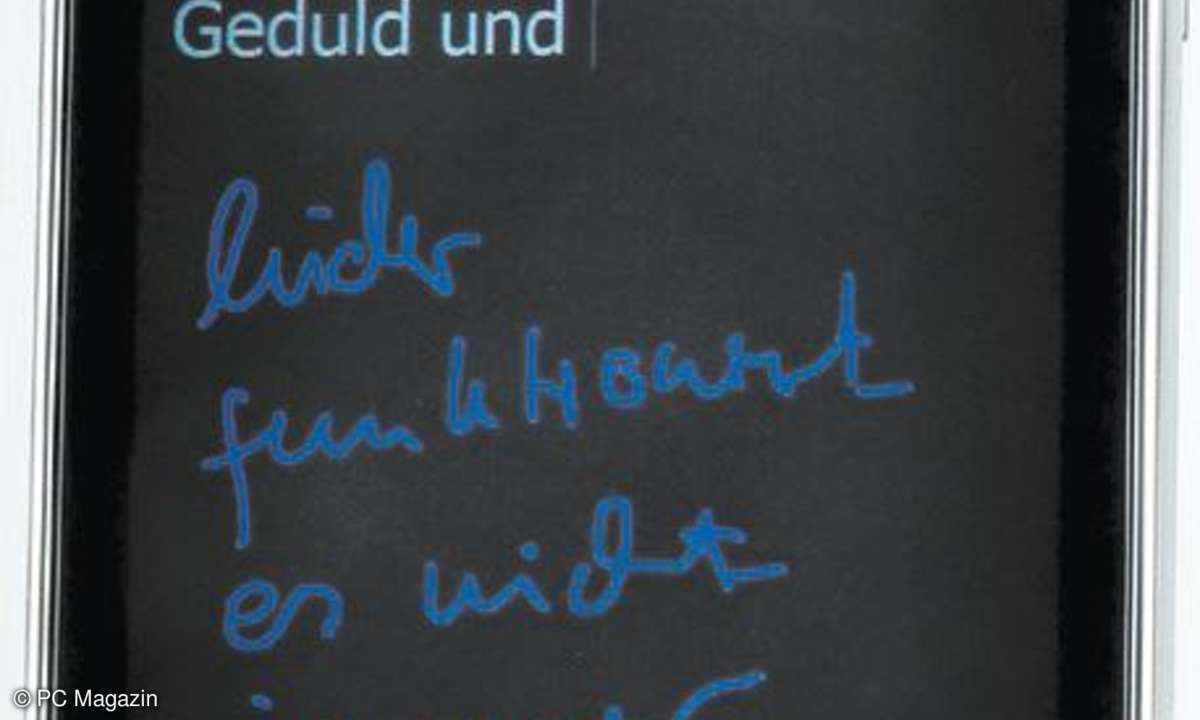 Geduld und
leider
funktioniert
es nicht
© PC Magazin